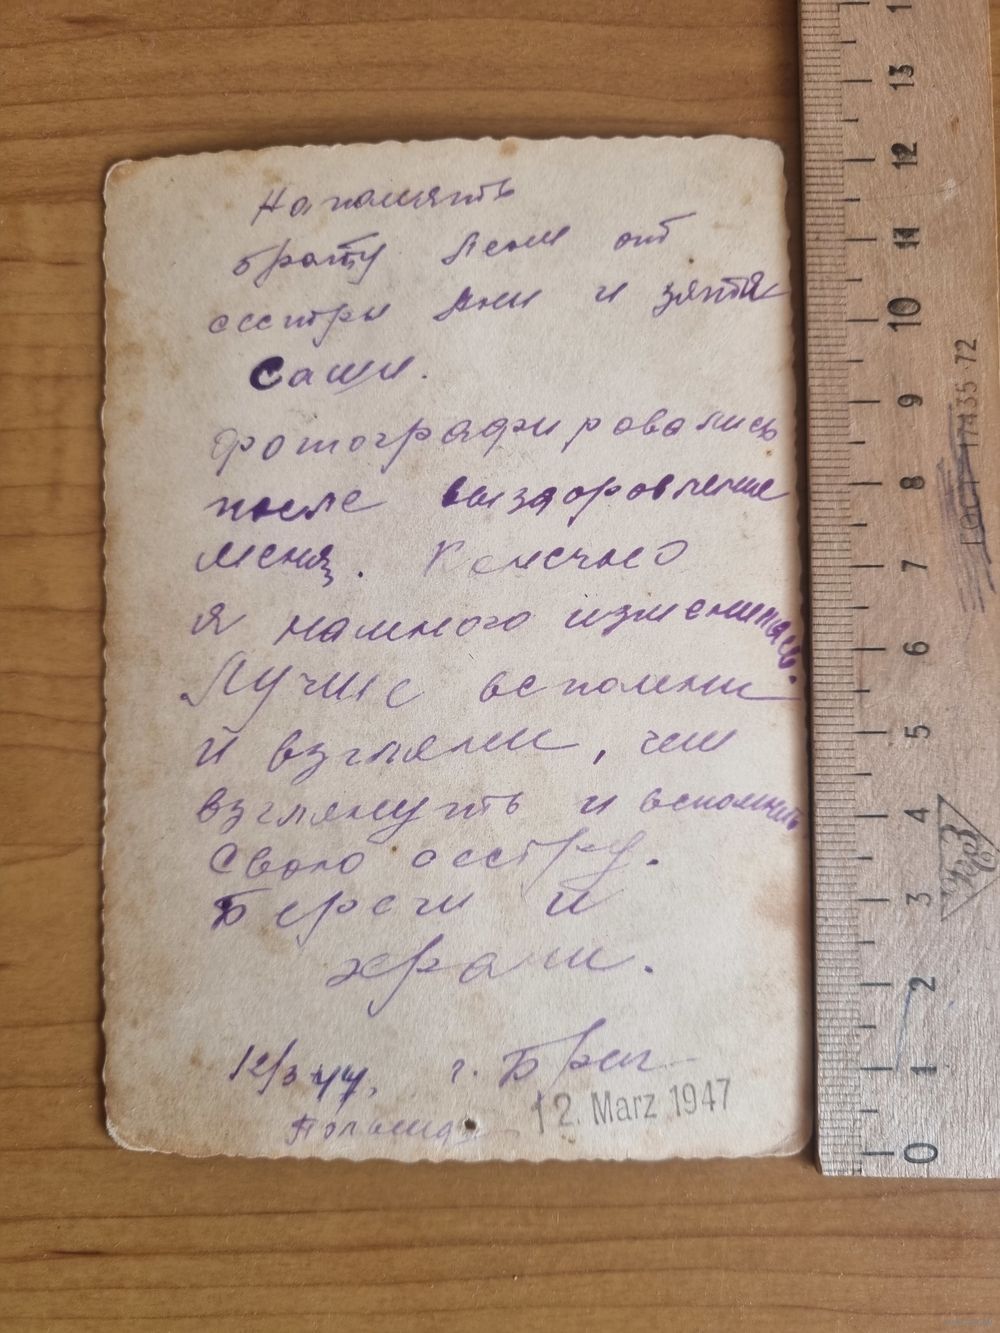 На память
брату Лени от
сестры Ани и зятя
Саши.
Фотографировались
после выздоровление
меня. Конечно
я намного изменилась.
Лучше вспомни
и взгляни, чем
взглянуть и вспомнить
свою сестру.
Береги и
храни.
12/3 47. г. Бриг-
Польша
12. Marz 1947
1
13
12
11
10
9
8
7
6
5
4
3
2
1
0
ГОСТ 17435-72